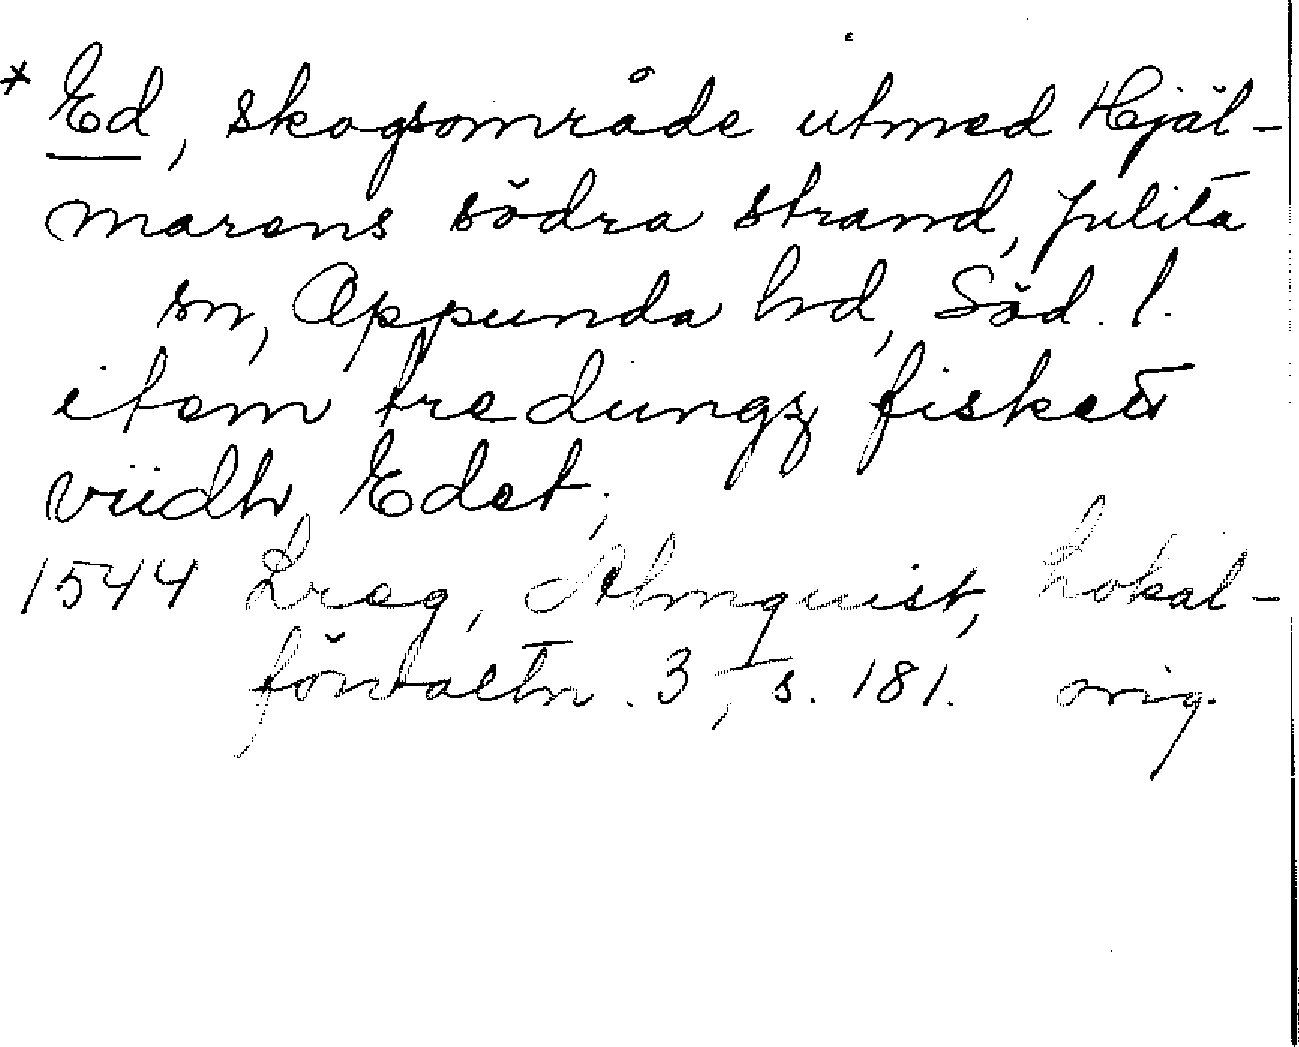 * Ed, skogsområde utmed Hjäl-
marens södra strand, Julita
sn, Oppunda hd, Söd. l.
item tredungz fisket
viidh Edet;
1544 Lreg, Almquist, Lokal-
förvaltn. 3, s. 181. orig.